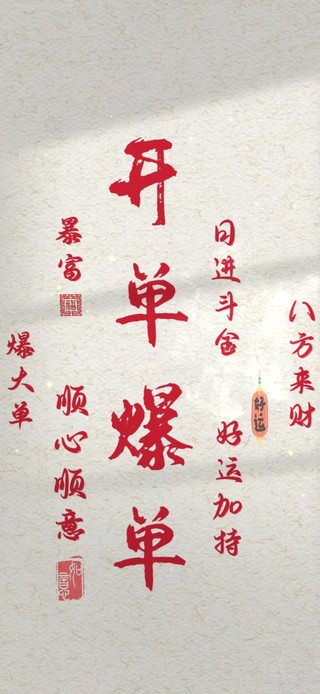 八方来财
好运
日进斗金
好运加持
开单爆单
暴富
顺心顺意
爆大单